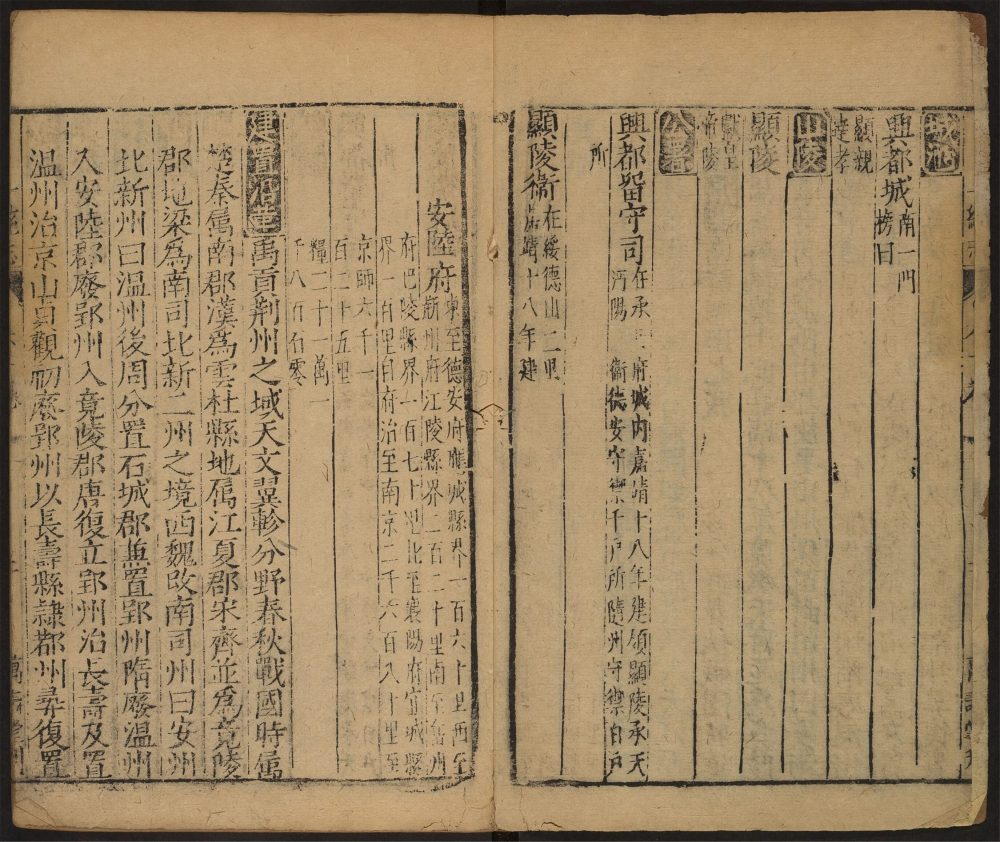 城池
興都城
南一門
榜曰
顯親
達孝
山陵
顯陵
獻皇
帝陵
公署
興都留守司
在承 府城内嘉靖十八年建領顯陵承天
沔陽 衛德安守禦千戶所隨州守禦百戶
所
顯陵衛
在綏德山二里
嘉靖十八年建
安陸府
東至德安府應城縣界一百六十里西至
荊州府江陵縣界二百二十里南至岳州
府巴陵縣界一百七十 北至襄陽府宜城縣
界一百 里自府治至南京二千六百八十里至
京師六千一
百二十五里
糧二十一萬一
千八百石零
建置沿革
禹貢荊州之域天文翼軫分野春秋戰國時屬
楚秦屬南郡漢爲雲杜縣地屬江夏郡宋齊並爲竟陵
郡地梁爲南司北新二州之境西魏改南司州曰安州
北新州曰溫州後周分置石城郡兼置郢州隋廢溫州
入安陸郡廢郢州入竟陵郡唐復立郢州治長壽及置
溫州治京山貞觀初廢郢州以長壽縣隸鄀州尋復置
萬壽堂刊